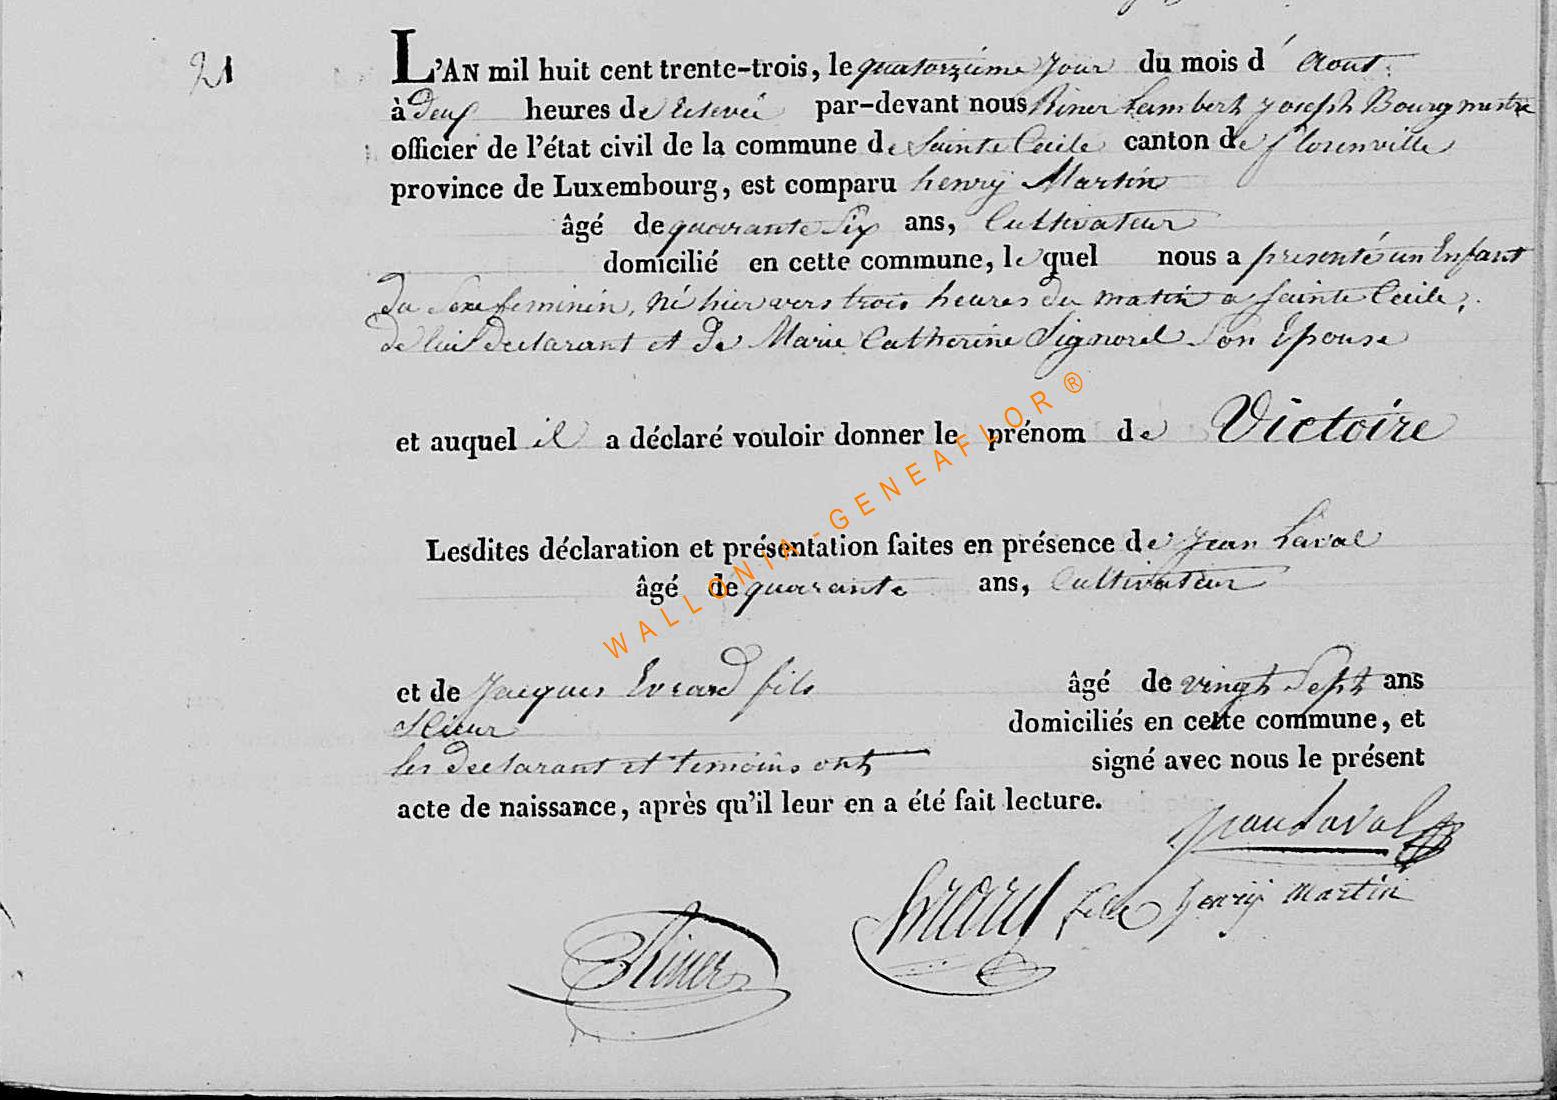 21
L'AN mil huit cent trente-trois, le quatorzième jour du mois d' Aout.
à deux heures de relevée par-devant nous Riner Lambert Joseph Bourgmestre
officier de l'état civil de la commune de Sainte Cécile canton de florenville
province de Luxembourg, est comparu henrÿ Martin
âgé de quarante Six ans, Cultivateur
domicilié en cette commune, le quel nous a presenté un Enfant
du Sexe feminin, né hier vers trois heures du matin a Sainte Cécile,
de lui declarant et de Marie Catherine Signorel Son Epouse
et auquel il a déclaré vouloir donner le prénom de Victoire
Lesdites déclaration et présentation faites en présence de Jean Laval
âgé de quarante ans, Cultivateur
et de Jacques Evrard fils âgé de vingt Sept ans
domiciliés en cette commune, et
les declarant et temoins ont signé avec nous le présent
acte de naissance, après qu'il leur en a été fait lecture.
Jean Laval
Evrard fils henrÿ martin
Riner
WALLONIA-GENEAFLOR®